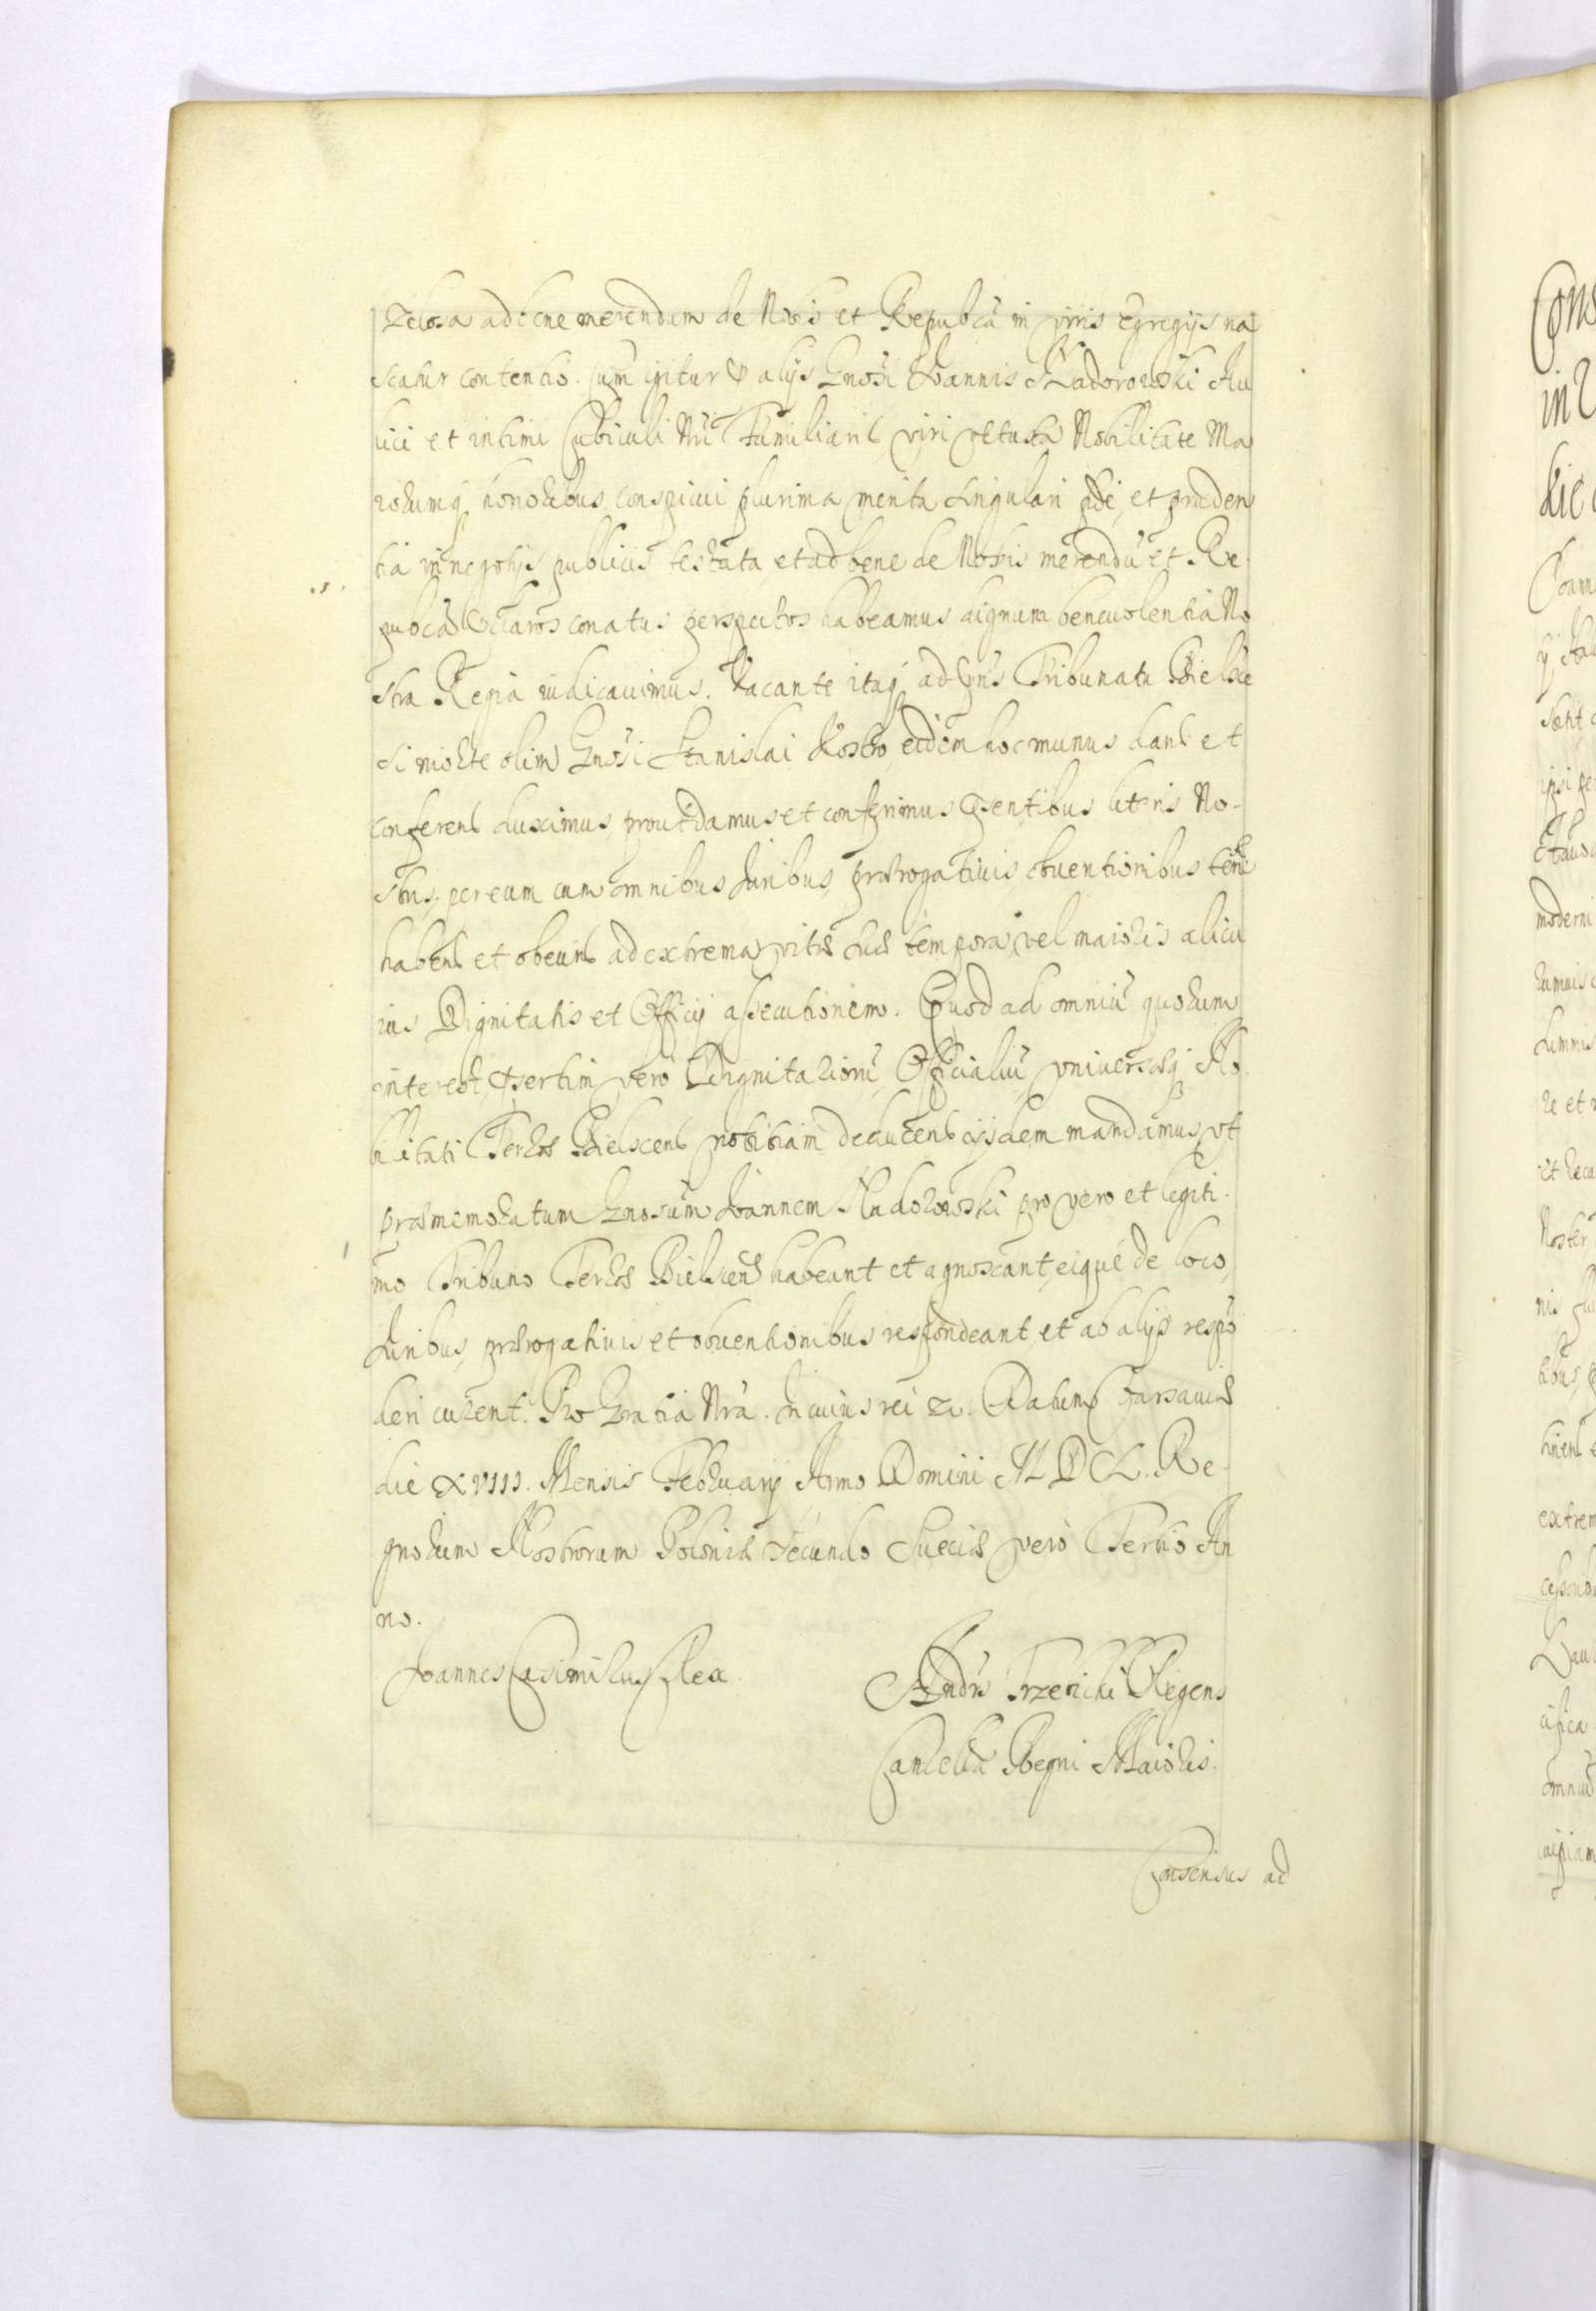 zelosa ad bene merendum de Nobis et Republcã in viris egregijs na
scatur contentio. Cum igitur præ alijs Gnosi Joannis Nadorowski Au
lici et intimi Cubiculi Nri Familiaris viri vetusta Nobilitate Ma
iorumq honoribus conspicui plurima merita singulari fide, et pruden
tia in negotijs publicis testata, et ad bene de Nobis merendũ et Re
publcã præclaros conatus perspectos habeamus dignum beneuolentia No
stra Regia iudicauimus. Vacante itaq ad præns Tribunatu Bielsce
si morte olim Gnosi Stanislai eidem hoc munus dand et
conferend duximus, prout damus et conferimus præsentibus literis No-
stris, per eum cum omnibus Juribus, prærogatiuis, obuentionibus tene
habend et obeund ad extrema vitæ suæ tempora, vel maioris alicu
ius Dignitatis et Officij assecutionem. Quod ad omniũ quorum
interest, præsertim vero Dignitariorũ, Officialiũ, vniversæq No
bilitati Terræ Bielscens notitiam deducend eijsdem mandamus, vt
præmemoratum Gnosum Joannem Nadorowski pro vero et legiti-
mo Tribuno Terræ Bielscens habeant et agnoscant, eique de loco,
Juribus, prærogatiuis et obuentionibus respondeant, et ab alijs respõ
deri curent. Pro Gratia Nra. In cuius rei &. Datum Varsauiæ
die XVIII. Mensis Februarij Anno Domini M D C L. Re-
gnorum Nostrorum Poloniæ Secundo Sueciæ vero Tertio An
no.
Joannes Casimirus Rex.
Andrs Trzebicki Regens
Cancellæ Regni Maioris.
Consensus ad